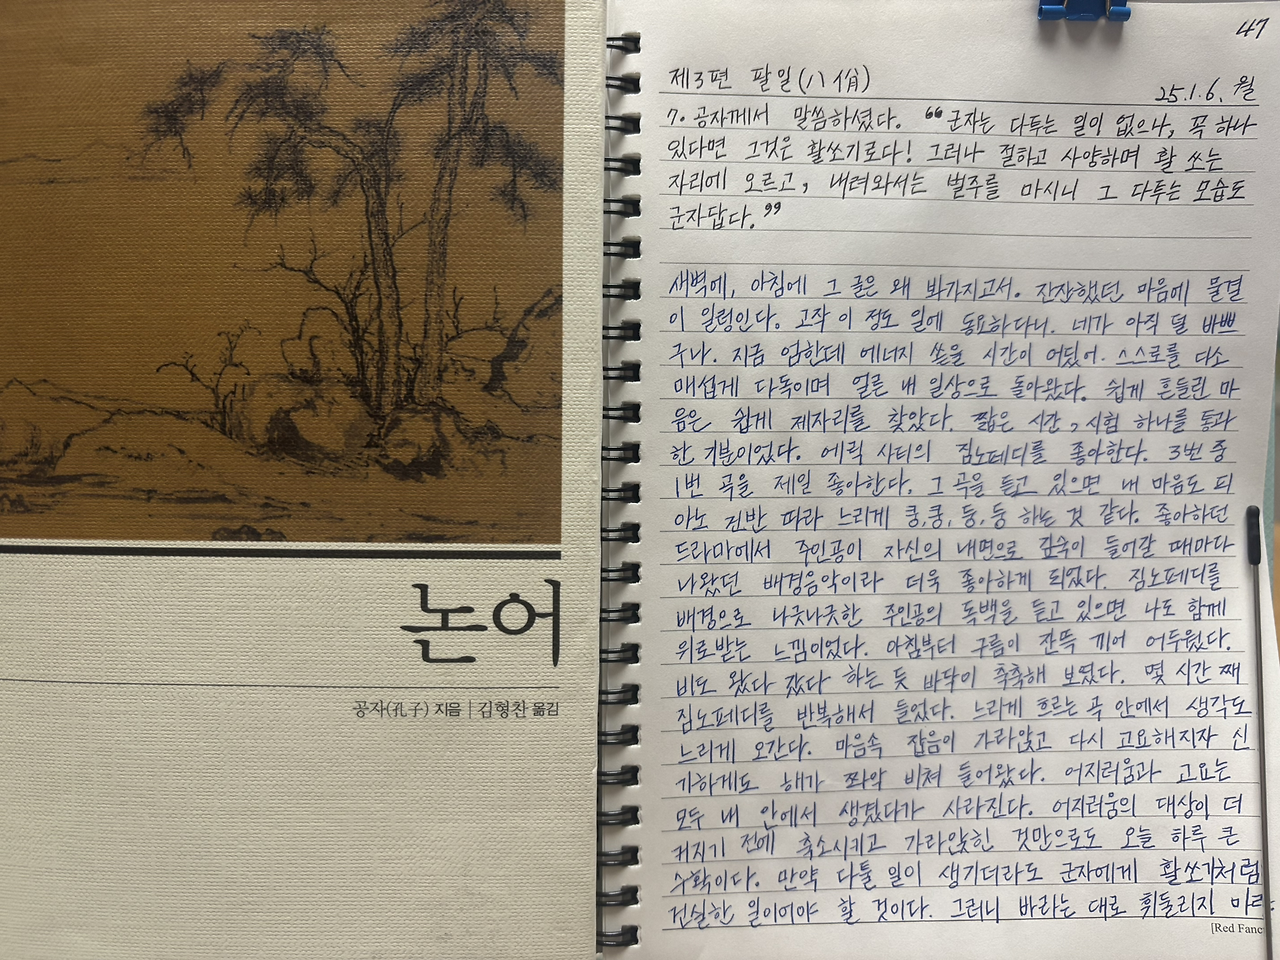 논어
공자(孔子) 지음 | 김형찬 옮김
47
제3편 팔일(八佾)
25.1.6. 월
7. 공자께서 말씀하셨다. "군자는 다투는 일이 없으나, 꼭 하나
있다면 그것은 활쏘기로다! 그러나 절하고 사양하며 활 쏘는
자리에 오르고, 내려와서는 벌주를 마시니 그 다투는 모습도
군자답다."
새벽에, 아침에 그 글은 왜 봐가지고서. 잔잔했던 마음에 물결
이 일렁인다. 고작 이 정도 일에 동요하다니. 네가 아직 덜 바쁘
구나. 지금 엄한데 에너지 쏟을 시간이 어딨어. 스스로를 다소
매섭게 다독이며 얼른 내 일상으로 돌아왔다. 쉽게 흔들린 마
음은 쉽게 제자리를 찾았다. 짧은 시간, 시험 하나를 통과
한 기분이었다. 에릭 사티의 짐노페디를 좋아한다. 3번 중
1번 곡을 제일 좋아한다. 그 곡을 듣고 있으면 내 마음도 피
아노 건반 따라 느리게 쿵, 쿵, 둥, 둥 하는 것 같다. 좋아하던
드라마에서 주인공이 자신의 내면으로 깊숙이 들어갈 때마다
나왔던 배경음악이라 더욱 좋아하게 되었다. 짐노페디를
배경으로 나긋나긋한 주인공의 독백을 듣고 있으면 나도 함께
위로받는 느낌이었다. 아침부터 구름이 잔뜩 끼어 어두웠다.
비도 왔다 갔다 하는 듯 바닥이 축축해 보였다. 몇 시간 째
짐노페디를 반복해서 들었다. 느리게 흐르는 곡 안에서 생각도
느리게 오간다. 마음속 잡음이 가라앉고 다시 고요해지자 신
기하게도 해가 쫘악 비쳐 들어왔다. 어지러움과 고요는
모두 내 안에서 생겼다가 사라진다. 어지러움의 대상이 더
커지기 전에 축소시키고 가라앉힌 것만으로도 오늘 하루 큰
수확이다. 만약 다툴 일이 생기더라도 군자에게 활쏘기처럼
건실한 일이어야 할 것이다. 그러니 바라는 대로 휘둘리지 마라
[Red Fanc